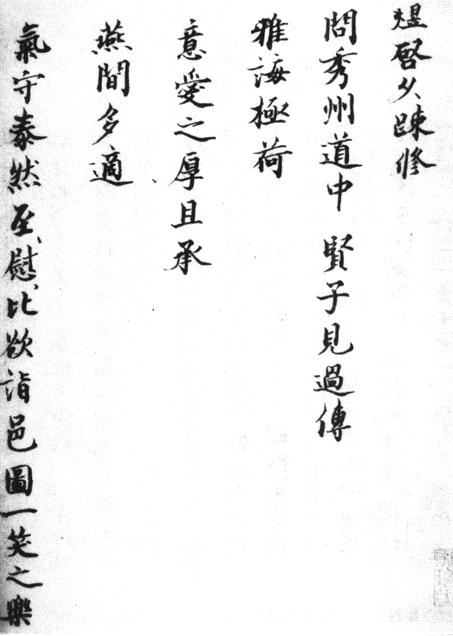 煜啓久疎修
問秀州道中 賢子見過傳
雅誨極荷
意愛之厚且承
燕閒多適
氣守泰然至慰至慰比欲詣邑圖一笑之樂